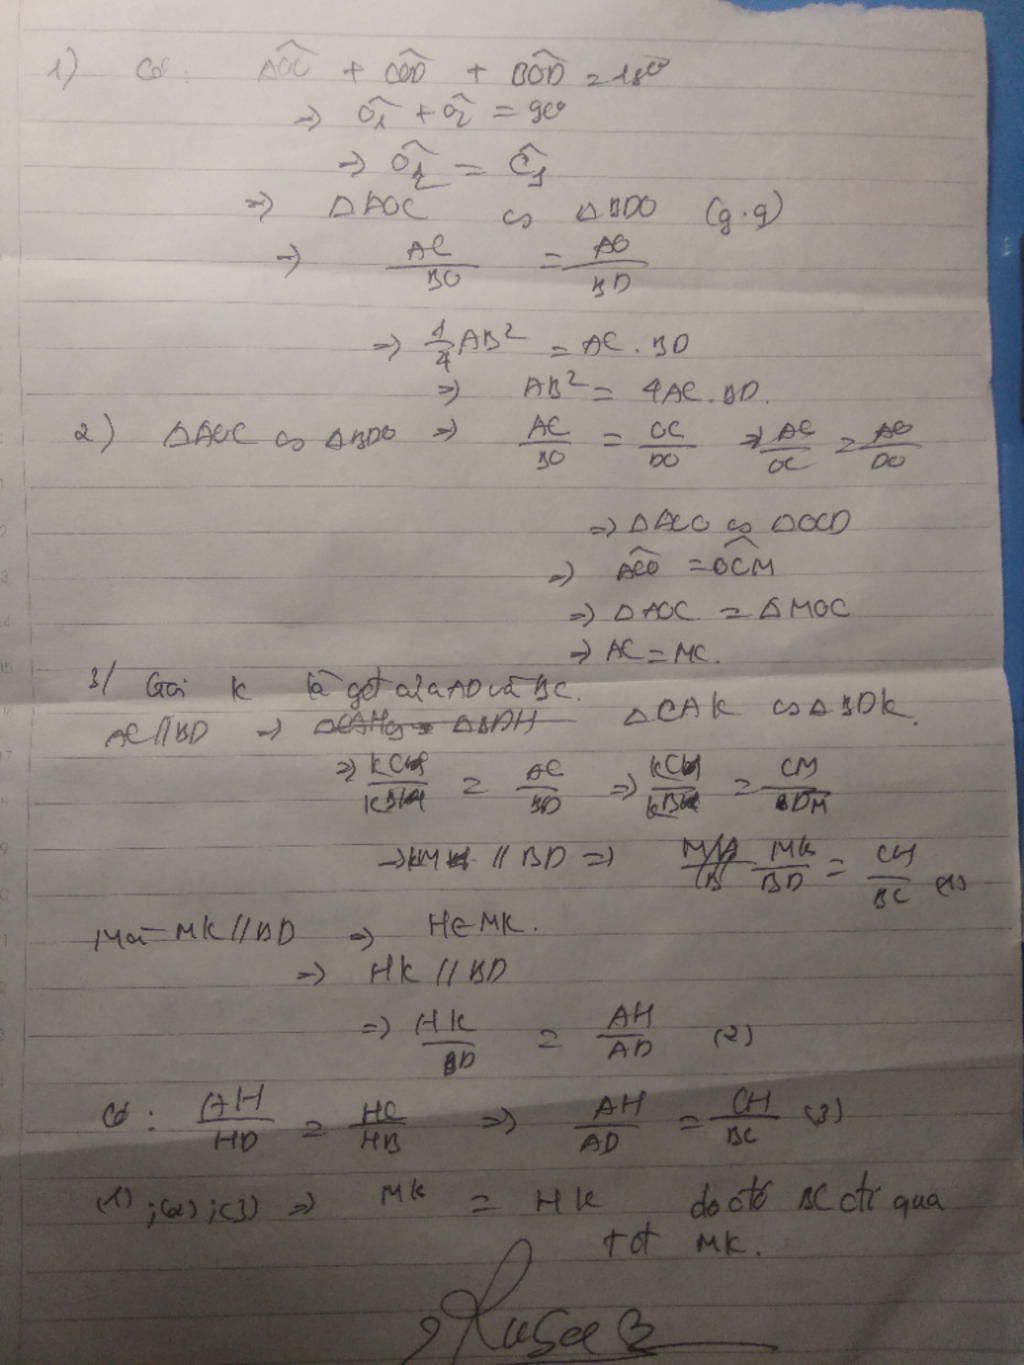 1) Có: AÔC + CÔD + BÔD = 180
=> Ô1 + Ô2 = 90
=> Ô2 = Ĉ1
=> ΔAOC ∽ ΔBDO (g.g)
=> AC/BO = AO/BD
=> 1/4 AB² = AC . BD
=> AB² = 4AC . BD.
2) ΔAOC ∽ ΔBDO => AC/BO = OC/DO => AC/OC = AO/DO
=> ΔACO ∽ ΔOCD
=> AĈO = OĈM
=> ΔAOC = ΔMOC
=> AC = MC.
3/ Gọi K là gđ của AD và BC.
AC // BD => ΔCAK ∽ ΔBDK.
=> KC/KB = AC/BD => KC/KB = CM/DM
=> KM // BD => MK/BD = CH/BC (1)
Mà MK // BD => H ∈ MK.
=> HK // BD
=> HK/BD = AH/AD (2)
Có: AH/HD = HC/HB => AH/AD = CH/BC (3)
(1) ; (2) ; (3) => MK = HK do đó BC đi qua
tđ MK.